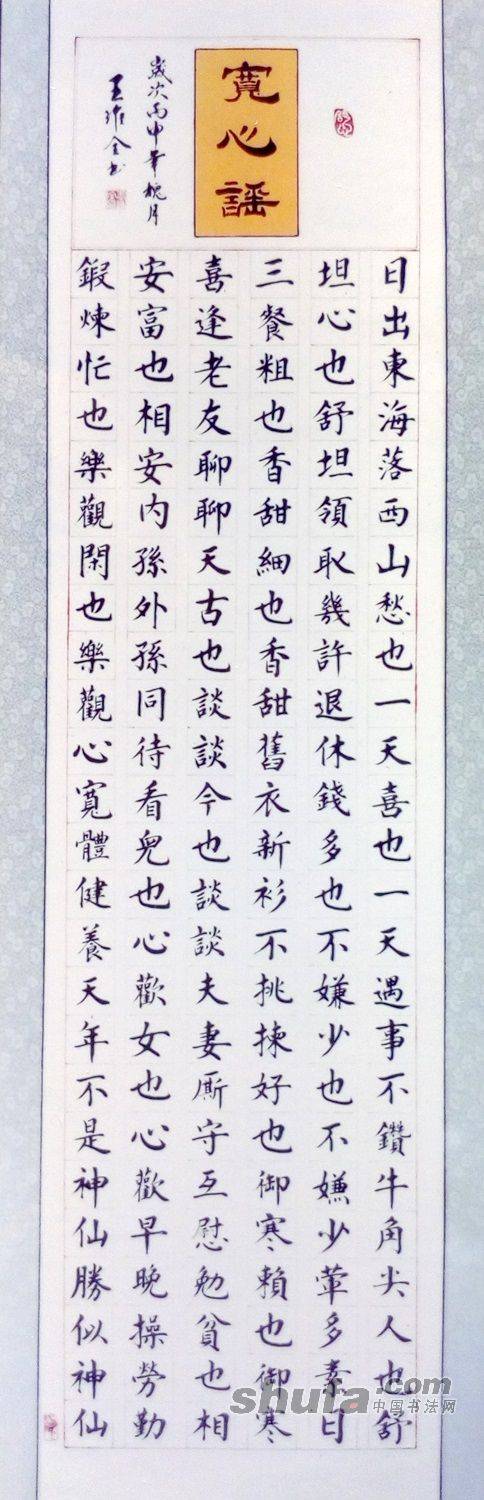 寬心謡
日出東海落西山愁也一天喜也一天遇事不鑽牛角尖人也舒
坦心也舒坦領取幾許退休錢多也不嫌少也不嫌少葷多素日
三餐粗也香甜細也香甜舊衣新衫不挑揀好也御寒賴也御寒
喜逢老友聊聊天古也談談今也談談夫妻厮守互慰勉貧也相
安富也相安内孫外孫同待看兒也心歡女也心歡早晚操勞勤
鍛煉忙也樂觀閑也樂觀心寬體健養天年不是神仙勝似神仙
歲次丙申年槐月
王維全书
shufa.com
中国书法网